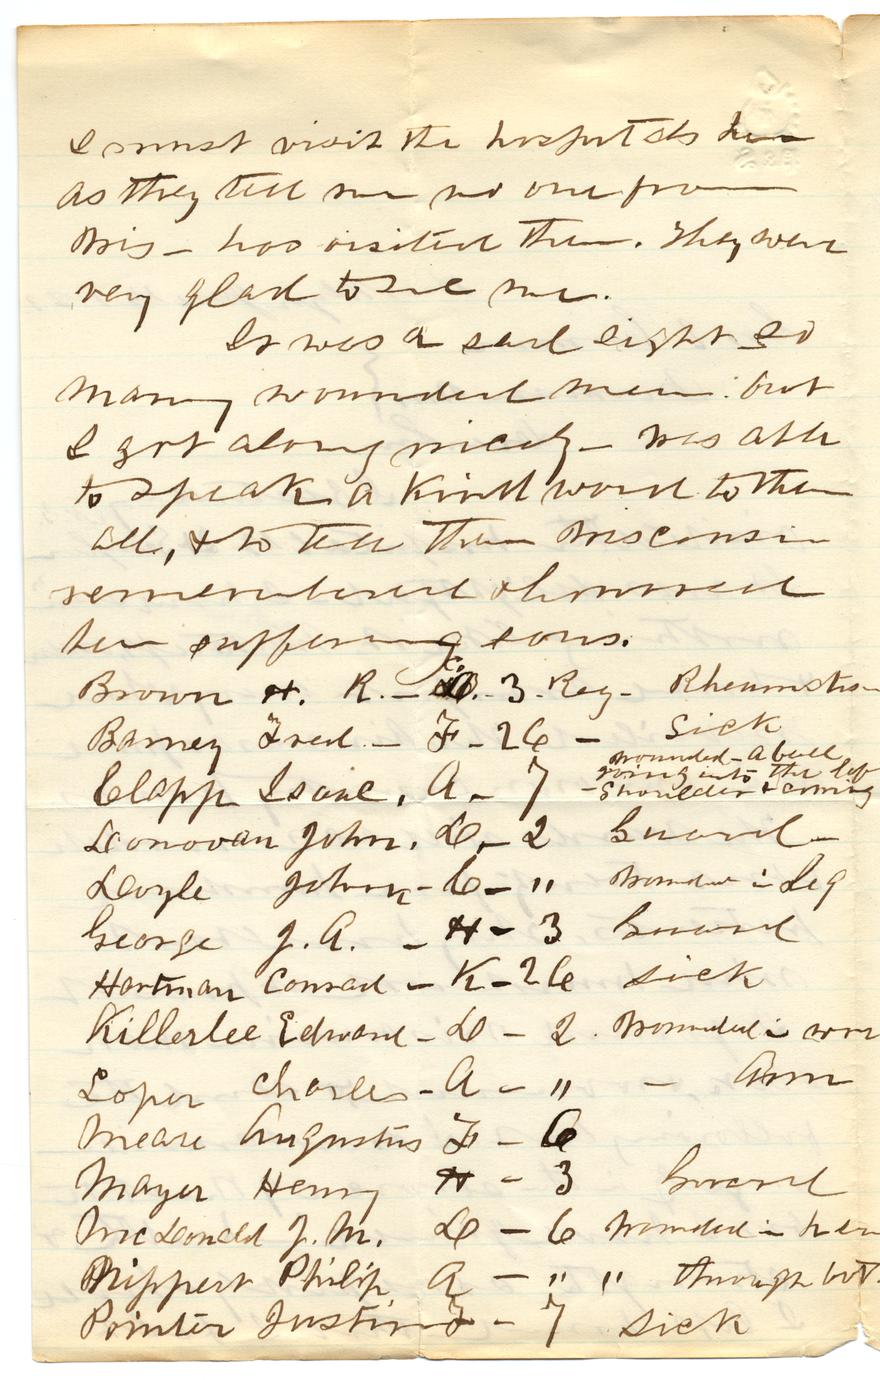 I must visit the hospitals here
as they tell me no one from
Wis – has visited them. They were
very glad to see me.
It was a sad sight so
many wounded men: but
I got along nicely – was able
to speak a kind word to them
all, & to tell them Wisconsin
remembered & honored
her suffering sons.
Brown H. R. – C. 3. Reg – Rheumatism
Barney Fred – F – 26 – Sick
wounded – a ball
Clapp Isaac, A. – 7 going into the left
– shoulder & coming
Donovan John. D. – 2 Guard –
Doyle John – C – " wounded in Leg
George J. A. – H – 3 Guard
Hartman Conrad – K – 26 sick
Killerlee Edward – D – 2. Wounded in
Loper Charles – A – " – Arm
Mease Augustus F – 6
Mayer Henry H – 3 Guard
McDonald J. M. D – 6 Wounded in
Philip A – " " through
Pointer Justin F – 7 sick